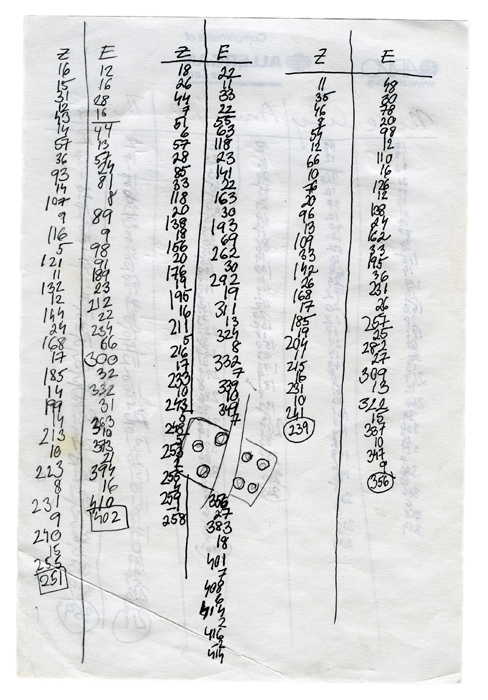 Z
16
15
31
12
43
14
57
36
93
14
107
9
116
5
121
11
132
12
144
24
168
17
185
14
199
14
213
10
223
8
231
9
240
15
255
251
E
12
16
28
16
44
13
57
24
81
8
89
9
98
91
189
23
212
22
234
66
300
32
332
31
363
10
373
21
394
16
410
402
Z
18
26
44
7
51
6
57
28
85
33
118
20
138
18
156
20
176
19
195
16
211
5
216
17
233
10
243
5
248
253
255
4
259
258
E
22
11
33
22
55
63
118
23
141
22
163
30
193
69
262
30
292
19
311
13
324
8
332
7
339
10
349
7
356
27
383
18
401
7
408
6
414
2
416
2
414
Z
11
35
46
8
54
12
66
10
76
20
96
13
109
33
142
26
168
17
185
19
204
11
215
16
231
10
241
239
E
48
30
78
20
98
12
110
16
126
12
138
24
162
33
195
36
231
26
257
25
282
27
309
13
322
15
337
10
347
9
356